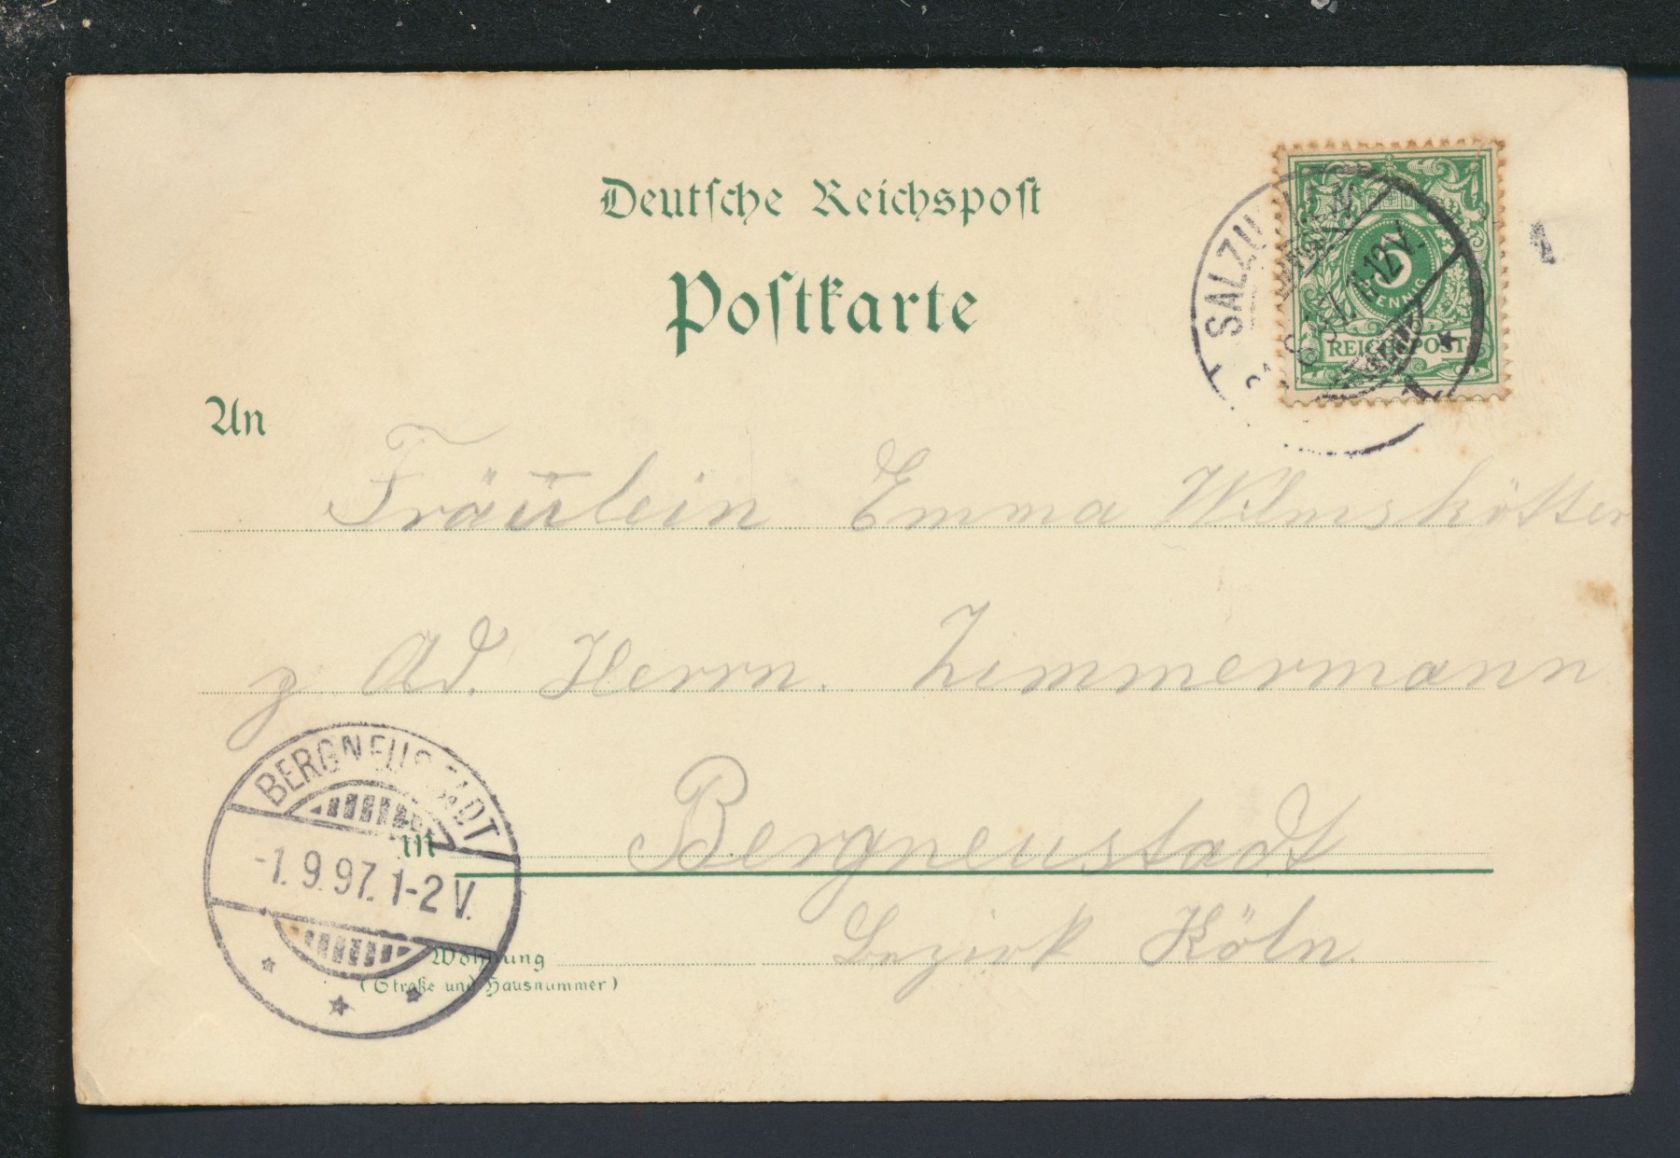 Deutsche Reichspost
Postkarte
5
PFENNIG
REICHSPOST
11-12V.
An
Fräulein Emma Wilmskötter
z. Ad. Herrn. Zimmermann
BERGNEUSTADT
-1.9.97. 1-2 V.
in Bergneustadt
Bezirk Köln.
Wohnung
(Straße und Hausnummer)